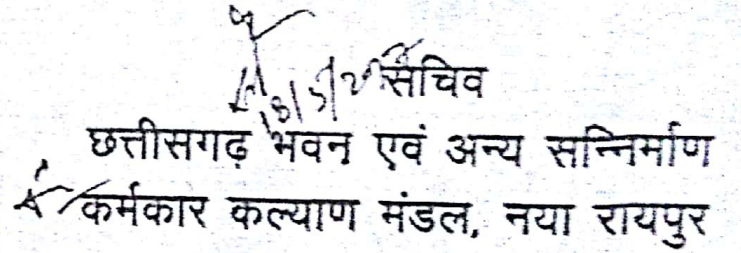 सचिव
छत्तीसगढ़ भवन एवं अन्य सन्निर्माण
कर्मकार कल्याण मंडल, नया रायपुर